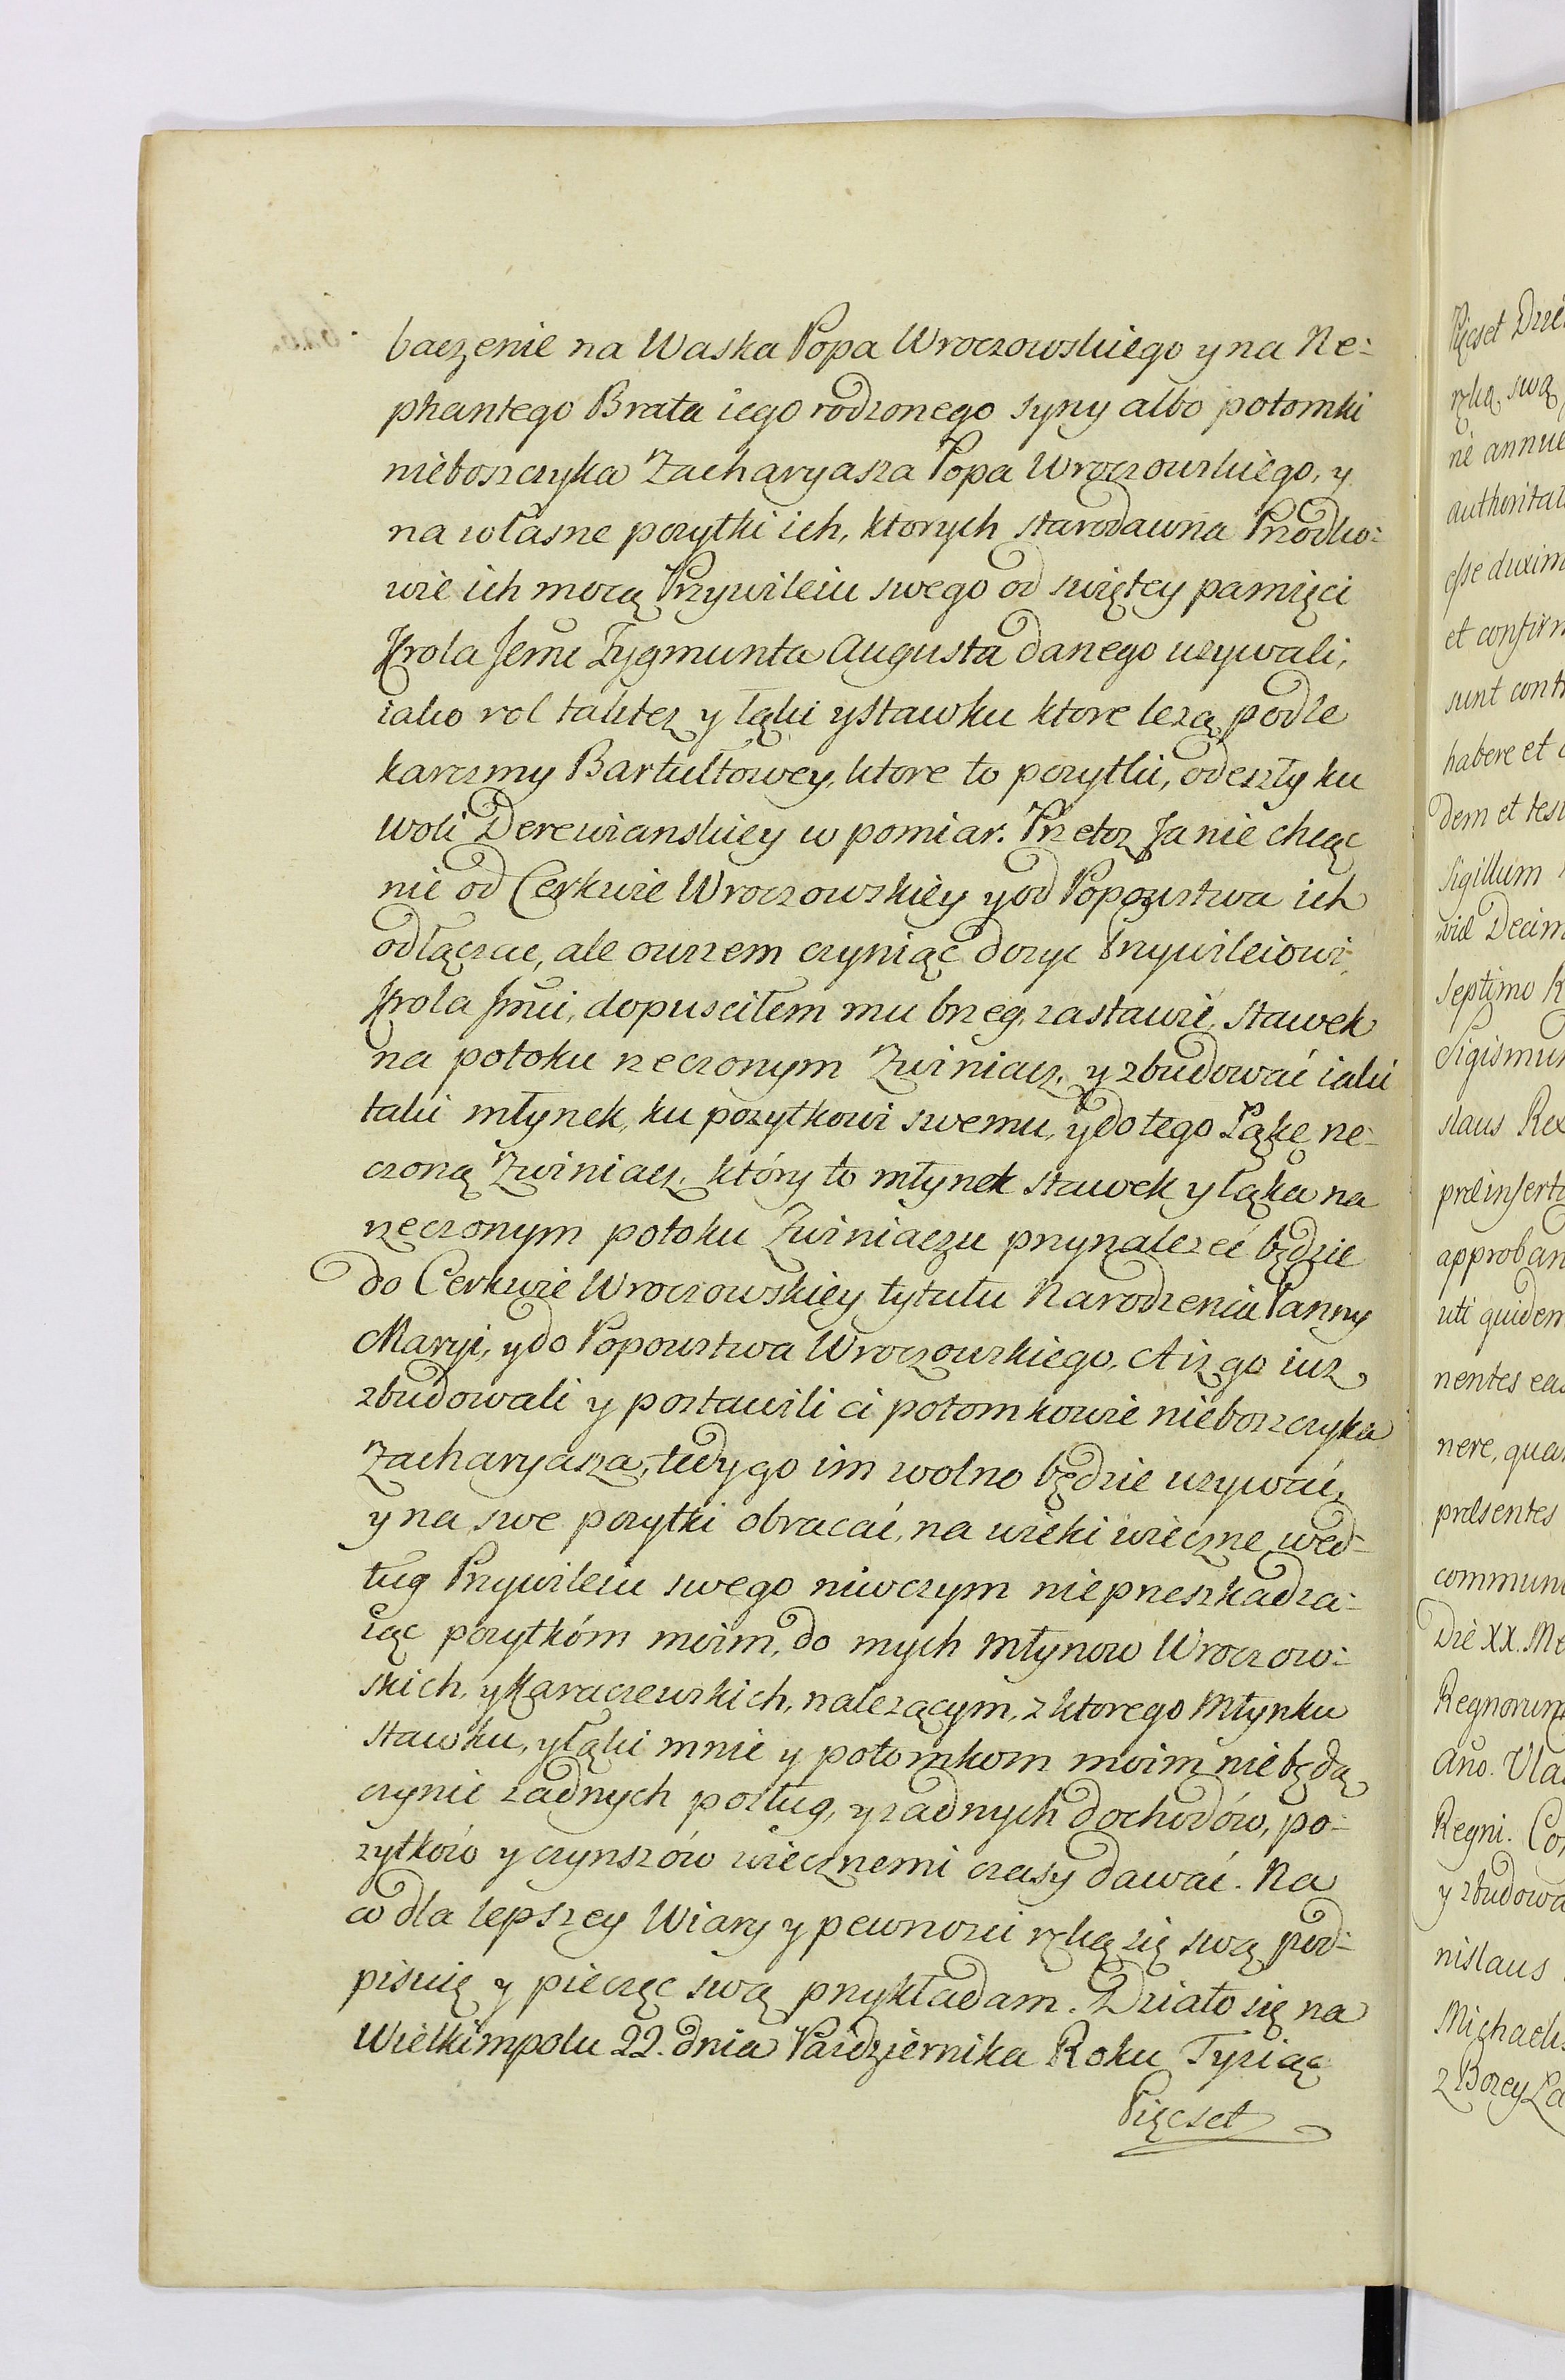 baczenie na Waska Popa Wroczowskiego y na Ne-
phantego Brata iego rodzonego syny albo potomki
nieboszczyka Zacharyasza Popa Wroczowskiego, y
na własne pozytki ich, ktorych starodawna Przodko-
wie ich mocą Przywileiu swego od swiętey pamięci
Krola Jemci Zygmunta Augusta danego uzywali,
iako rol taktez y łąki y stawku ktore lezą podle
karczmy Bartułtowey, ktore to pozytki, odeszły ku
woli Derewianskiey w pomiar. Przetoz Ja nie chcąc
nic od Cerkwie Wroczowskiey y od Popowstwa ich
odłączac, ale owszem czyniąc dozyc Przywileiowi
Krola Jmci, dopusciłem mu brzeg, zastawić, stawek
na potoku rzeczonym Zwiniacz, y zbudować iaki
taki młynek, ku pozytkowi swemu, y do tego Łąkę rze-
czoną Zwiniacz, który to młynek stawek y łąka na
rzeczonym potoku Zwiniaczu przynalezeć będzie
do Cerkwie Wroczowskiey tytułu Narodzenia Panny
Maryi, y do Popowstwa Wroczowskiego, A iz go iuz
zbudowali y postawili ci potomkowie nieboszczyka
Zacharyasza, tedy go im wolno będzie uzywać,
y na swe pozytki obracać, na wieki wieczne wed-
ług Przywileiu swego niwczym nieprzeszkadza-
iąc pozytkóm moim, do mych młynow Wroczow-
skich, y Karaczewskich, nalezącym, z ktorego Młynku
stawku, y łąki mnie y potomkom moim nie będą
czynic zadnych posług, y zadnych dochodów, po-
zytków y czynszów wiecznemi czasy dawać. Na
co dla lepszey Wiary y pewnosci ręką się swą pod-
pisuię y pieczęc swą przykładam. Działo się na
Wielkimpolu 22. dnia Pazdziernika Roku Tysiąc
Pięcset
Pięcset
ręką swą
ne annue
authoritat
esse duxim
et confirm
sunt cont
habere et
dem et
Sigillum
Decim
Septimo
Sigismun
slaus Rex
præinserto
approban
uti quidem
nentes
nere, qua
præsentes
commun
Die XX. Me
Regnorum
Año. Vla
Regni. Co
y zbudowa
nislaus
Michaelis
z Bozey Ła